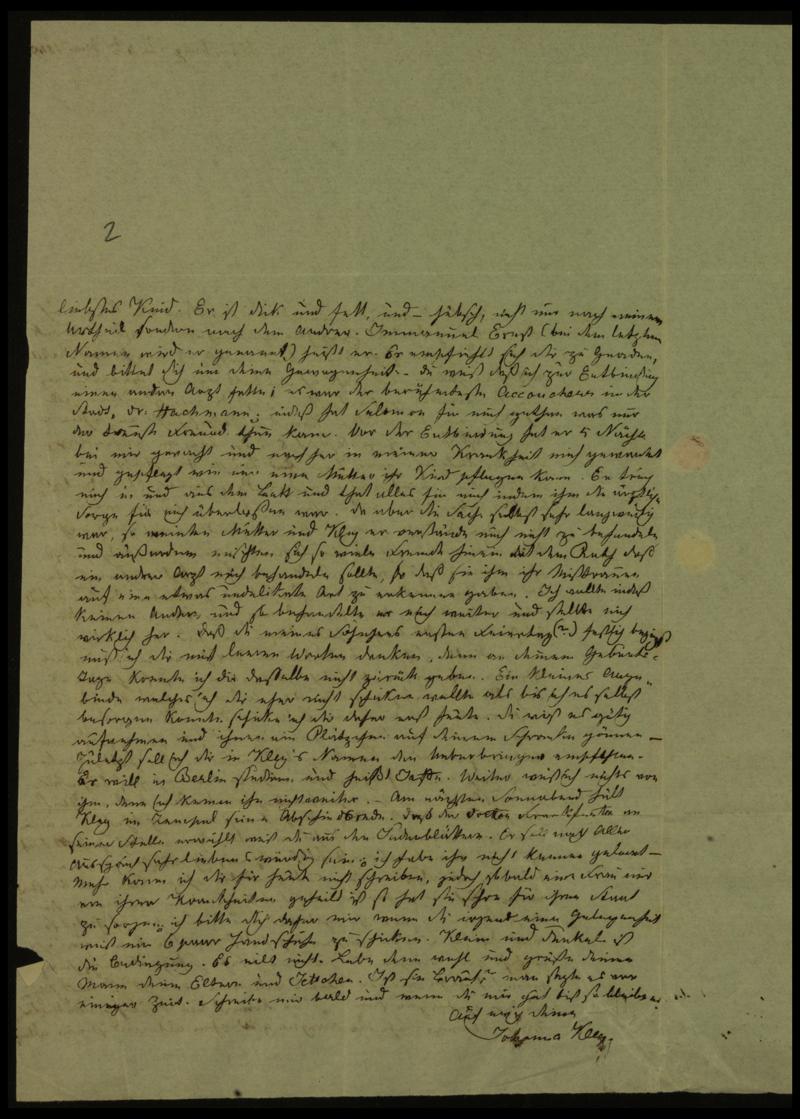 2
liebstes Kind. Er ist dick und fett, und – hübsch, nicht nur nach meinem
Urtheil sondern nach dem Anderer. Immanuel Ernst (bei dem letzten
Namen wird er genannt) heißt er. Er empfiehlt sich dir zu Gnaden,
und bittet dich um deine Gewogenheit. – Du weißt daß ich zur Entbindung
einen andern Arzt hatte; es war der berühmteste Accoucheur in der
Stadt, Dr. Hachmann; indeß hat Salomon für mich gethan was nur
der treuste Freund thun kann. Vor der Entbindung hat er 5 Nächte
bei mir gewacht und nachher in meiner Krankheit mich gewartet
und gepflegt wie nur eine Mutter ihr Kind pflegen kann. Er trug
mich in und aus dem Bett und that alles für mich indem ihm die ärztliche
Sorge für mich überlassen war. Da aber die Sache selbst sehr langweilig
war, so meinten Mutter und Kley er verstände mich nicht zu behandeln
und außerdem mischten sich so viele Fremde hinein mit dem Rath daß
ein andrer Arzt mich behandeln sollte, so daß sie ihm ihr Mißtrauen
auf eine etwas undelikate Art zu erkennen gaben. Ich wollte indeß
keinen Andern und so behandelte er mich weiter und stellte mich
wirklich her. Daß du meines Söhnchens ersten Feiertag (?) festlich
muß ich dir mit leeren Worten danken, denn an deinem Geburts-
Tage konnte ich dir dasselbe nicht zurück geben. Ein kleines Ange-
binde welches ich dir eher nicht schicken wollte als bis ich es selbst
besorgen konnte schicke ich dir daher erst heute. Du wirst es gütig
aufnehmen und ihm ein Plätzchen auf deinem gönnen –
Zuletzt soll ich dir in Kley's Namen den Ueberbringer empfehlen.
Er will in Berlin studiren und heißt Weiter weiß ich nichts von
ihm, denn ich kenne ihn nicht weiter. – Am nächsten Sonnabend hält
Kley im Tempel seine Abschiedsrede. Daß der Doctor Frankfurter an
seiner Stelle erwählt weißt du aus den Judenblättern. Er soll nach Aller
Ausspruch sehr liebenswürdig sein; ich habe ihn nicht kennen gelernt –
Mehr kann ich dir für heute nicht schreiben, jedoch sobald eine Frau nur
von ihren Krankheiten geheilt ist so hat sie schon für ihren Staat
zu sorgen; ich bitte dich daher mir wenn du irgend eine Gelegenheit
weißt mir 6 paar Handschuhe zu schicken. Klein und dunkel ist
die Bedingung. Es eilt nicht. Lebe denn wohl und grüße deinen
Mann deine Eltern und Jettchen. Ist sie Braut? man sagte es vor
einiger Zeit. Schreibe mir bald und wenn du mir gut bist so bleibe
Auch ewig deine
Johanna Kley.